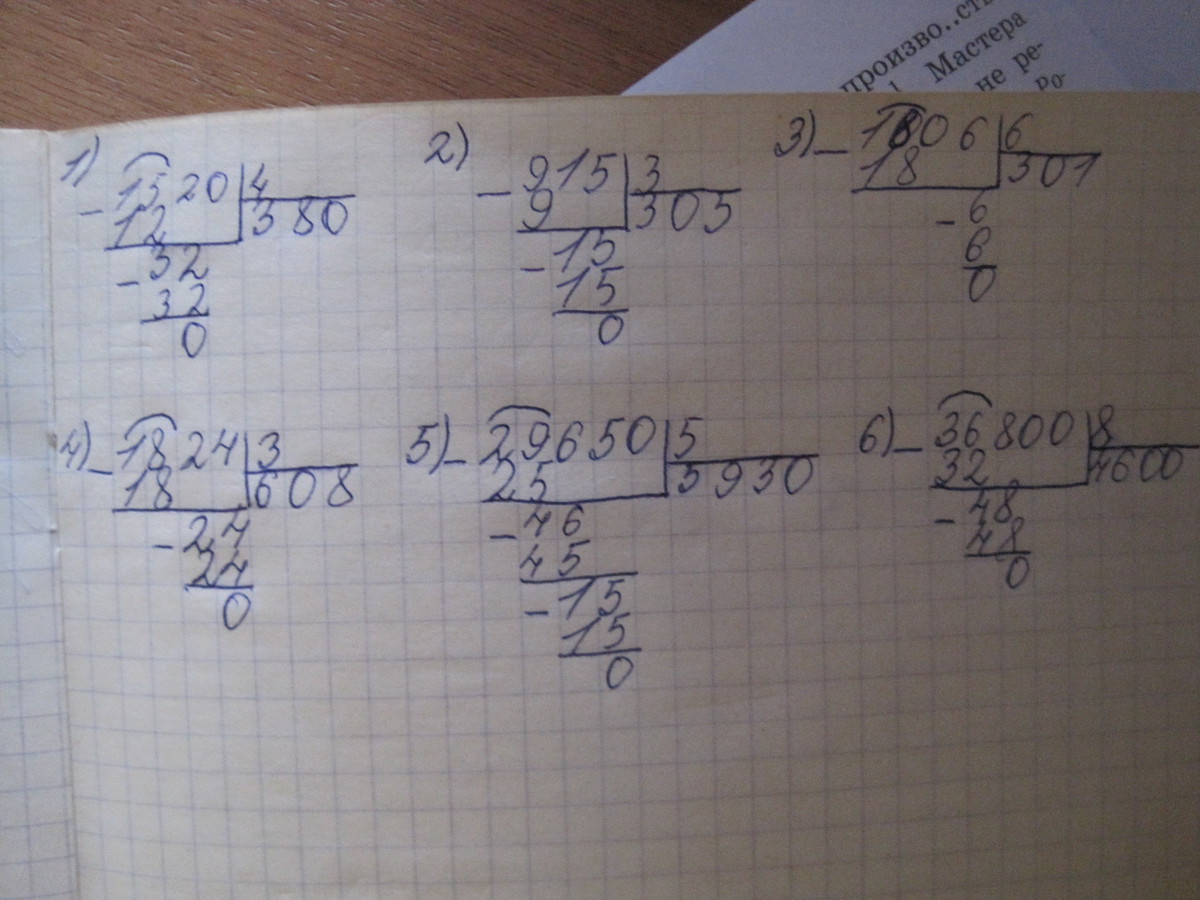 произво..ств
Мастера
не ре-
Ро-
1) 1520 | 4
− 12 | 380
− 32
32
0
2) − 915 | 3
9 | 305
− 15
15
0
3) − 1806 | 6
18 | 301
− 6
6
0
4) − 1824 | 3
18 | 608
− 24
24
0
5) − 29650 | 5
25 | 5930
− 46
45
− 15
15
0
6) − 36800 | 8
32 | 4600
− 48
48
0